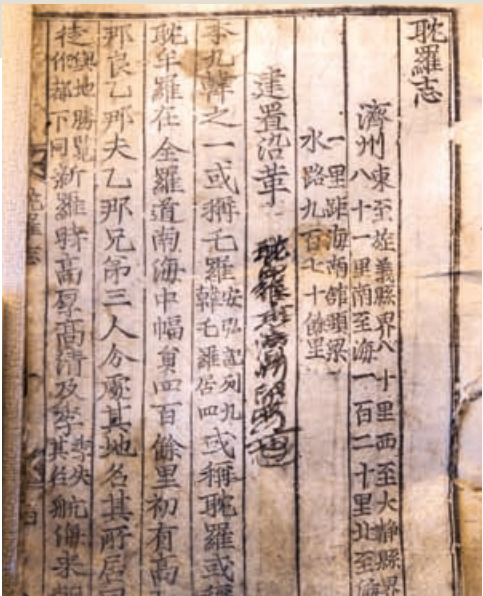 耽羅志
濟州東至旌義縣界八十里西至大靜縣界
八十一里南至海一百二十里北至海
一里距海南館頭梁
水路九百七十餘里
建置沿革
本九韓之一或稱乇羅安弘記列九韓乇羅居四或稱耽羅或稱
耽牟羅在全羅道南海中幅員四百餘里初有高
那良乙那夫乙那兄弟三人分處其地名其所居曰
徒輿地勝覽作都下同新羅時高厚高清及季季失其名航海來
耽羅志